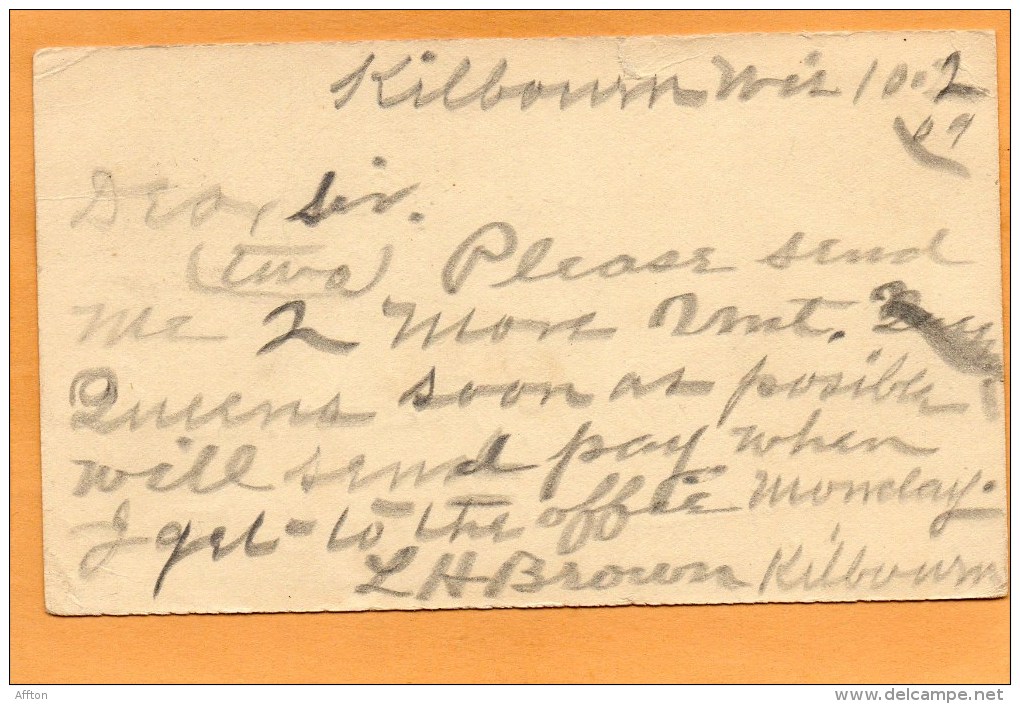 Kilbourn Wis 10-2
09
Dear Sir.
(two) Please send
Me 2 More Unt.
Queens soon as posible
will send pay when
I get to the office Monday.
L H Brown Kilbourn
Affton
www.delcampe.net